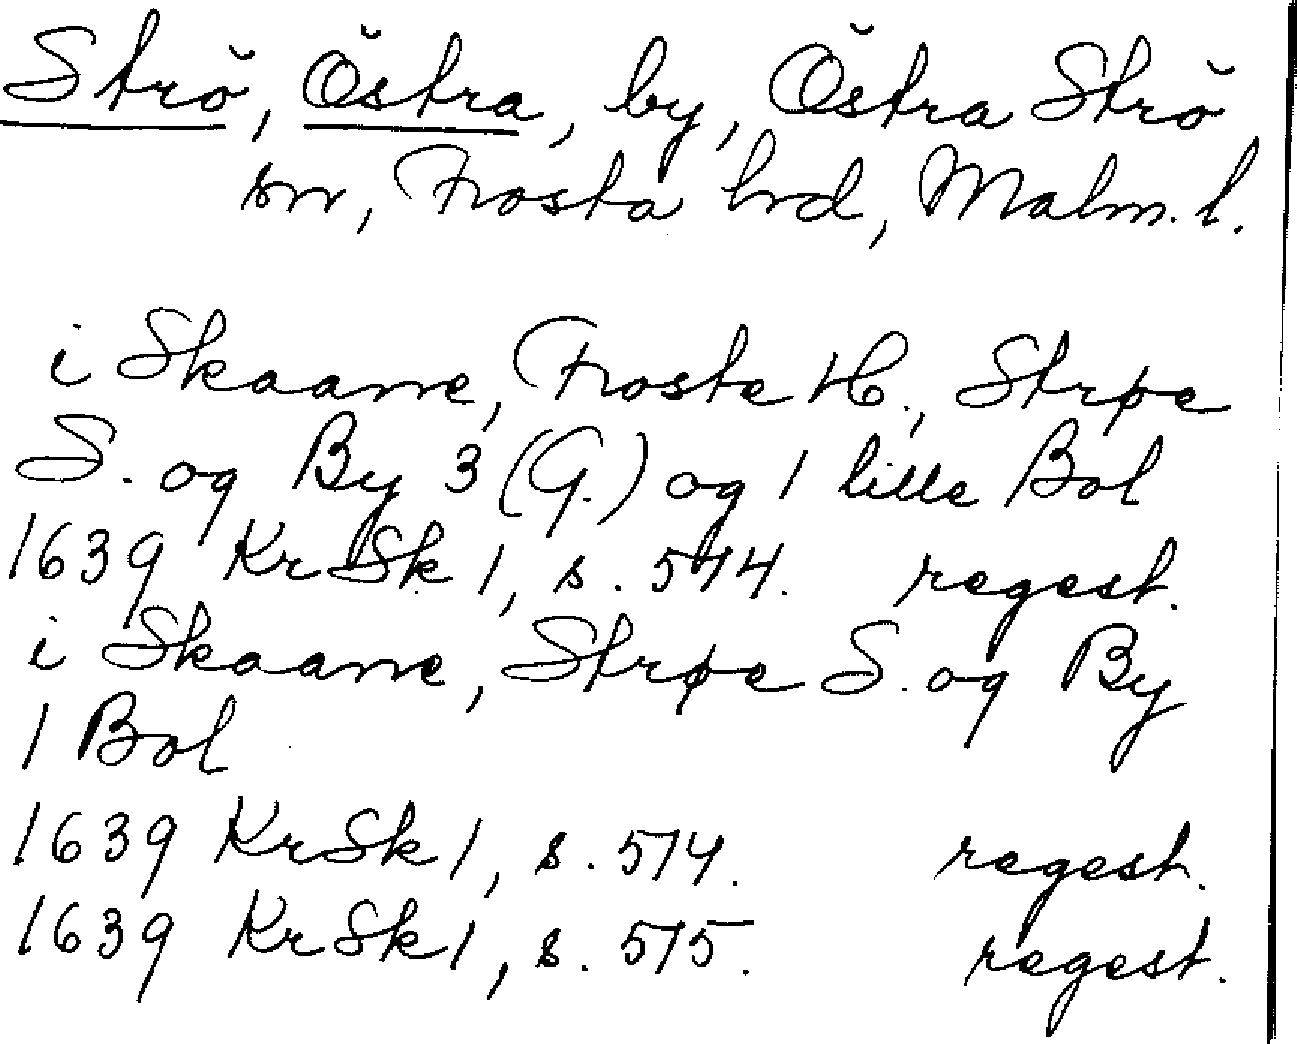 Strö, Östra, by, Östra Strö
sn, Frosta hrd, Malm. l.
i Skaane, Froste H., Strøe
S. og By 3 (G.) og 1 lille Bol
1639 KrSk 1, s. 544. regest.
i Skaane, Strøe S. og By
1 Bol
1639 KrSk 1, s. 574. regest.
1639 KrSk 1, s. 575. regest.